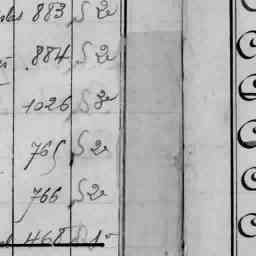 883 S 2e
884 S 2e
1026 S 3e
765 S 2e
766 S 2e
468